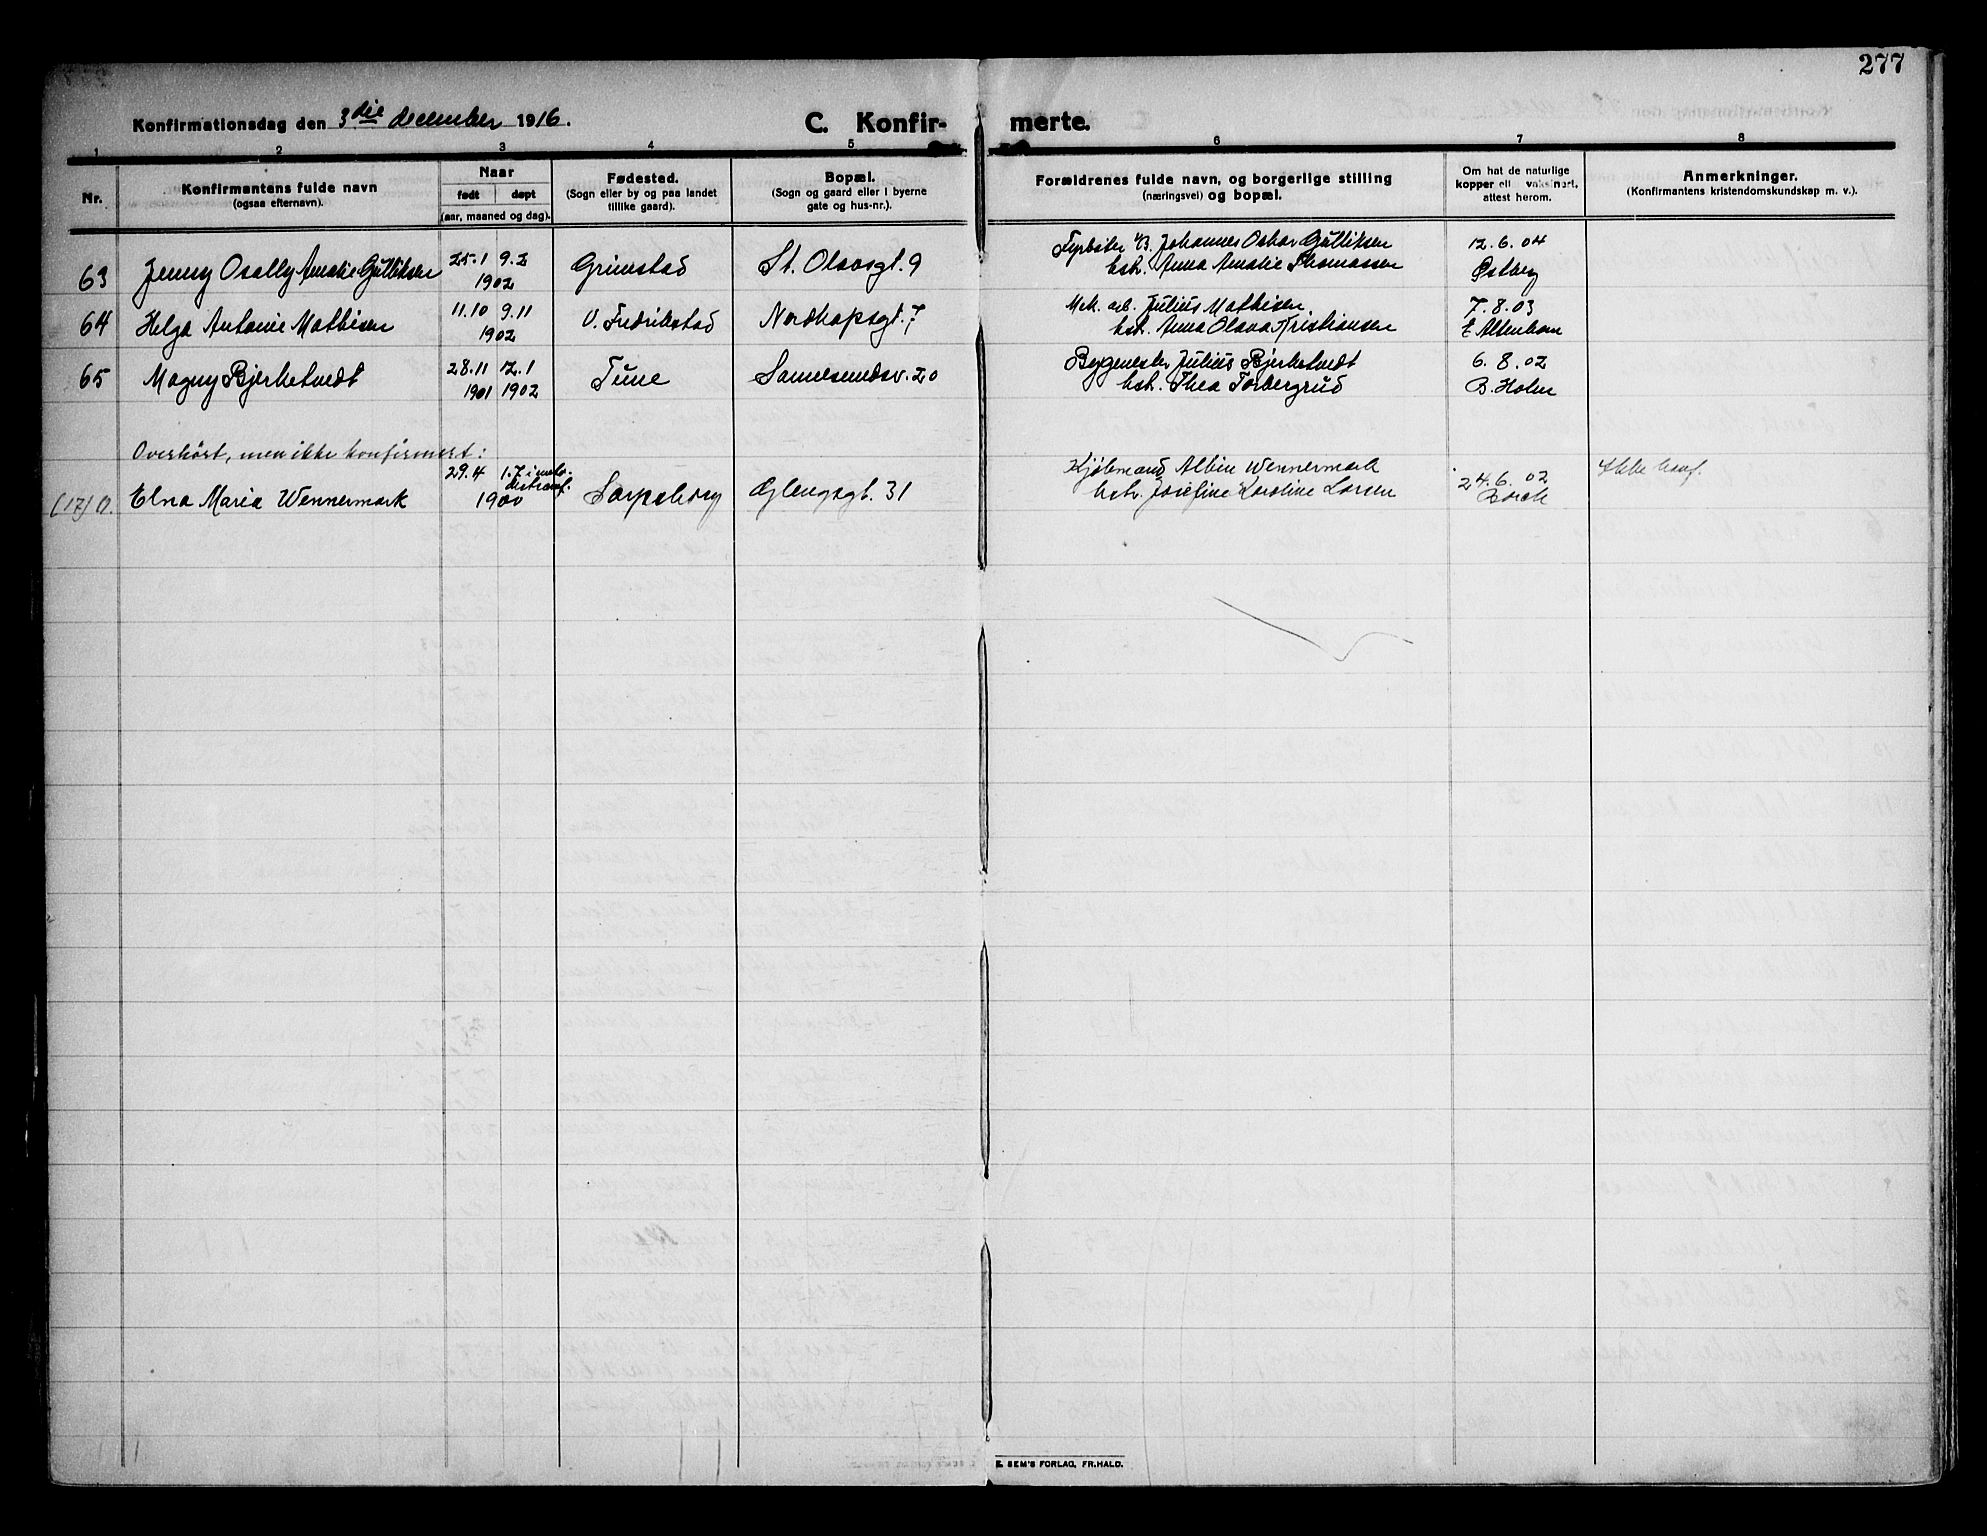 277
Konfirmationsdag den 3die december 1916.
C. Konfirmerte.
1 2 3 4 5 6 7 8
Nr.
Konfirmantens fulde navn
(ogsaa efternavn).
Naar
født døpt
(aar, maaned og dag).
Fødested.
(Sogn eller by og paa landet
tillike gaard).
Bopæl.
(Sogn og gaard eller i byerne
gate og hus-nr.).
Forældrenes fulde navn, og borgerlige stilling
(næringsvei) og bopæl.
Om hat de naturlige
kopper ell vaksinert,
attest herom.
Anmerkninger.
(Konfirmantens kristendomskundskap m. v.).
63 Jenny Osally Amalie Gulliksen 25.1 9.2 1902 Grimstad St. Olavsgt. 9
Fyrbøter Johannes Oskar Gulliksen
hstr. Anna Amalie Thomassen
12.6.04
Østberg
64 Helga Antonie Mathisen 11.10 9.11 1902 V. Fredrikstad Nordkapsgt. 7
Mek. arb. Julius Mathisen
hstr. Anna Olava Kristiansen
7.8.03
E Altenborn
65 Magny Bjerketvedt 28.11 1901 12.1 1902 Tune Sannesundsv. 20
Bygmester Julius Bjerketvedt
hstr. Thea Torbergrud
6.8.02
B. Holm
Overhørt, men ikke konfirmert:
(17) Elna Maria Wennermark 29.4 1.7 i 1900 Sarpsborg Glengsgt. 31
Kjøbmand Albin Wennermark
hstr. Josefine Karoline Larsen
24.6.02
Borch
Ikke konf.
E. SEM'S FORLAG, FR.HALD.